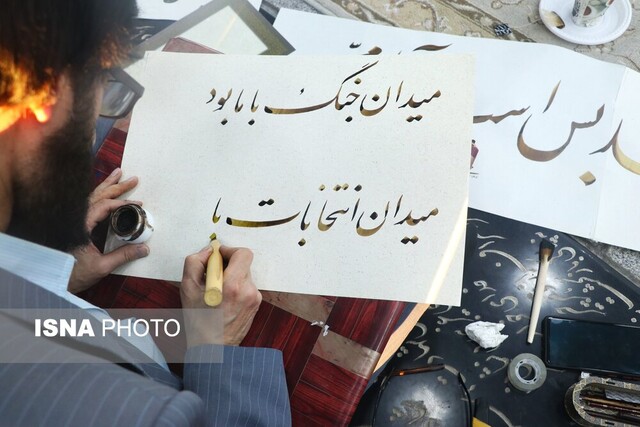 میدان جنگ با بابود
میدان انتخابات با
ISNA PHOTO